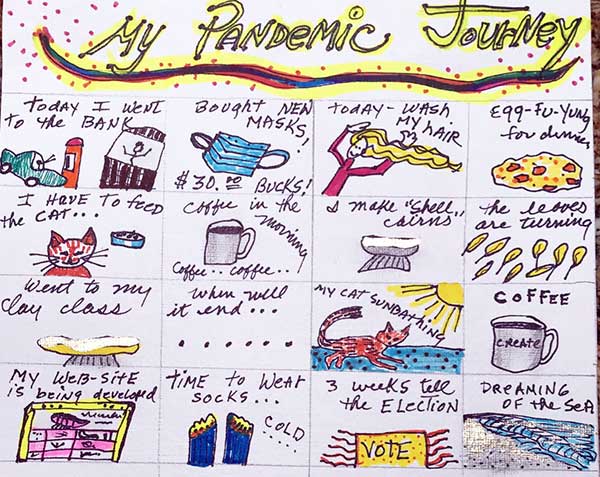 My Pandemic Journey
today I went
to the BANK
Bought NEW
MASKS!
$30.00 BUCKS!
today - WASH
MY HAIR
Egg-Fu-Yung
for dinner
I HAVE to feed
the CAT...
Coffee in the
morning
Coffee.. coffee..
I make "Shell"
cairns
the leaves
are turning
Went to my
clay class
when will
it end...
MY CAT SUNBATHING
COFFEE
CREATE
MY WEB-SITE
is being developed
TIME to WEAR
SOCKS...
COLD....
3 weeks tell
the Election
VOTE
DREAMING
OF the SEA